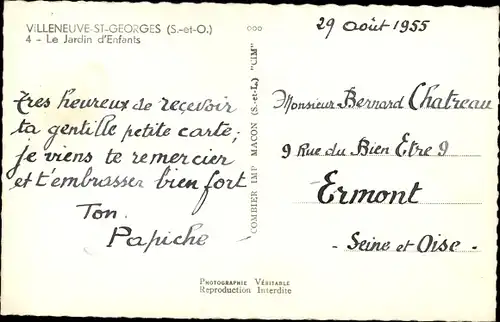 VILLENEUVE-ST-GEORGES (S.-et-O.)
4 - Le Jardin d'Enfants
29 Août 1955
Très heureux de recevoir
ta gentille petite carte;
je viens te remercier
et t'embrasser bien fort
Ton.
Papiche
COMBIER IMP. MACON (S.-et-L.) "CIM"
Monsieur Bernard Chatreau
9 Rue du Bien Etre 9
Ermont
- Seine et Oise -
PHOTOGRAPHIE VÉRITABLE
Reproduction Interdite